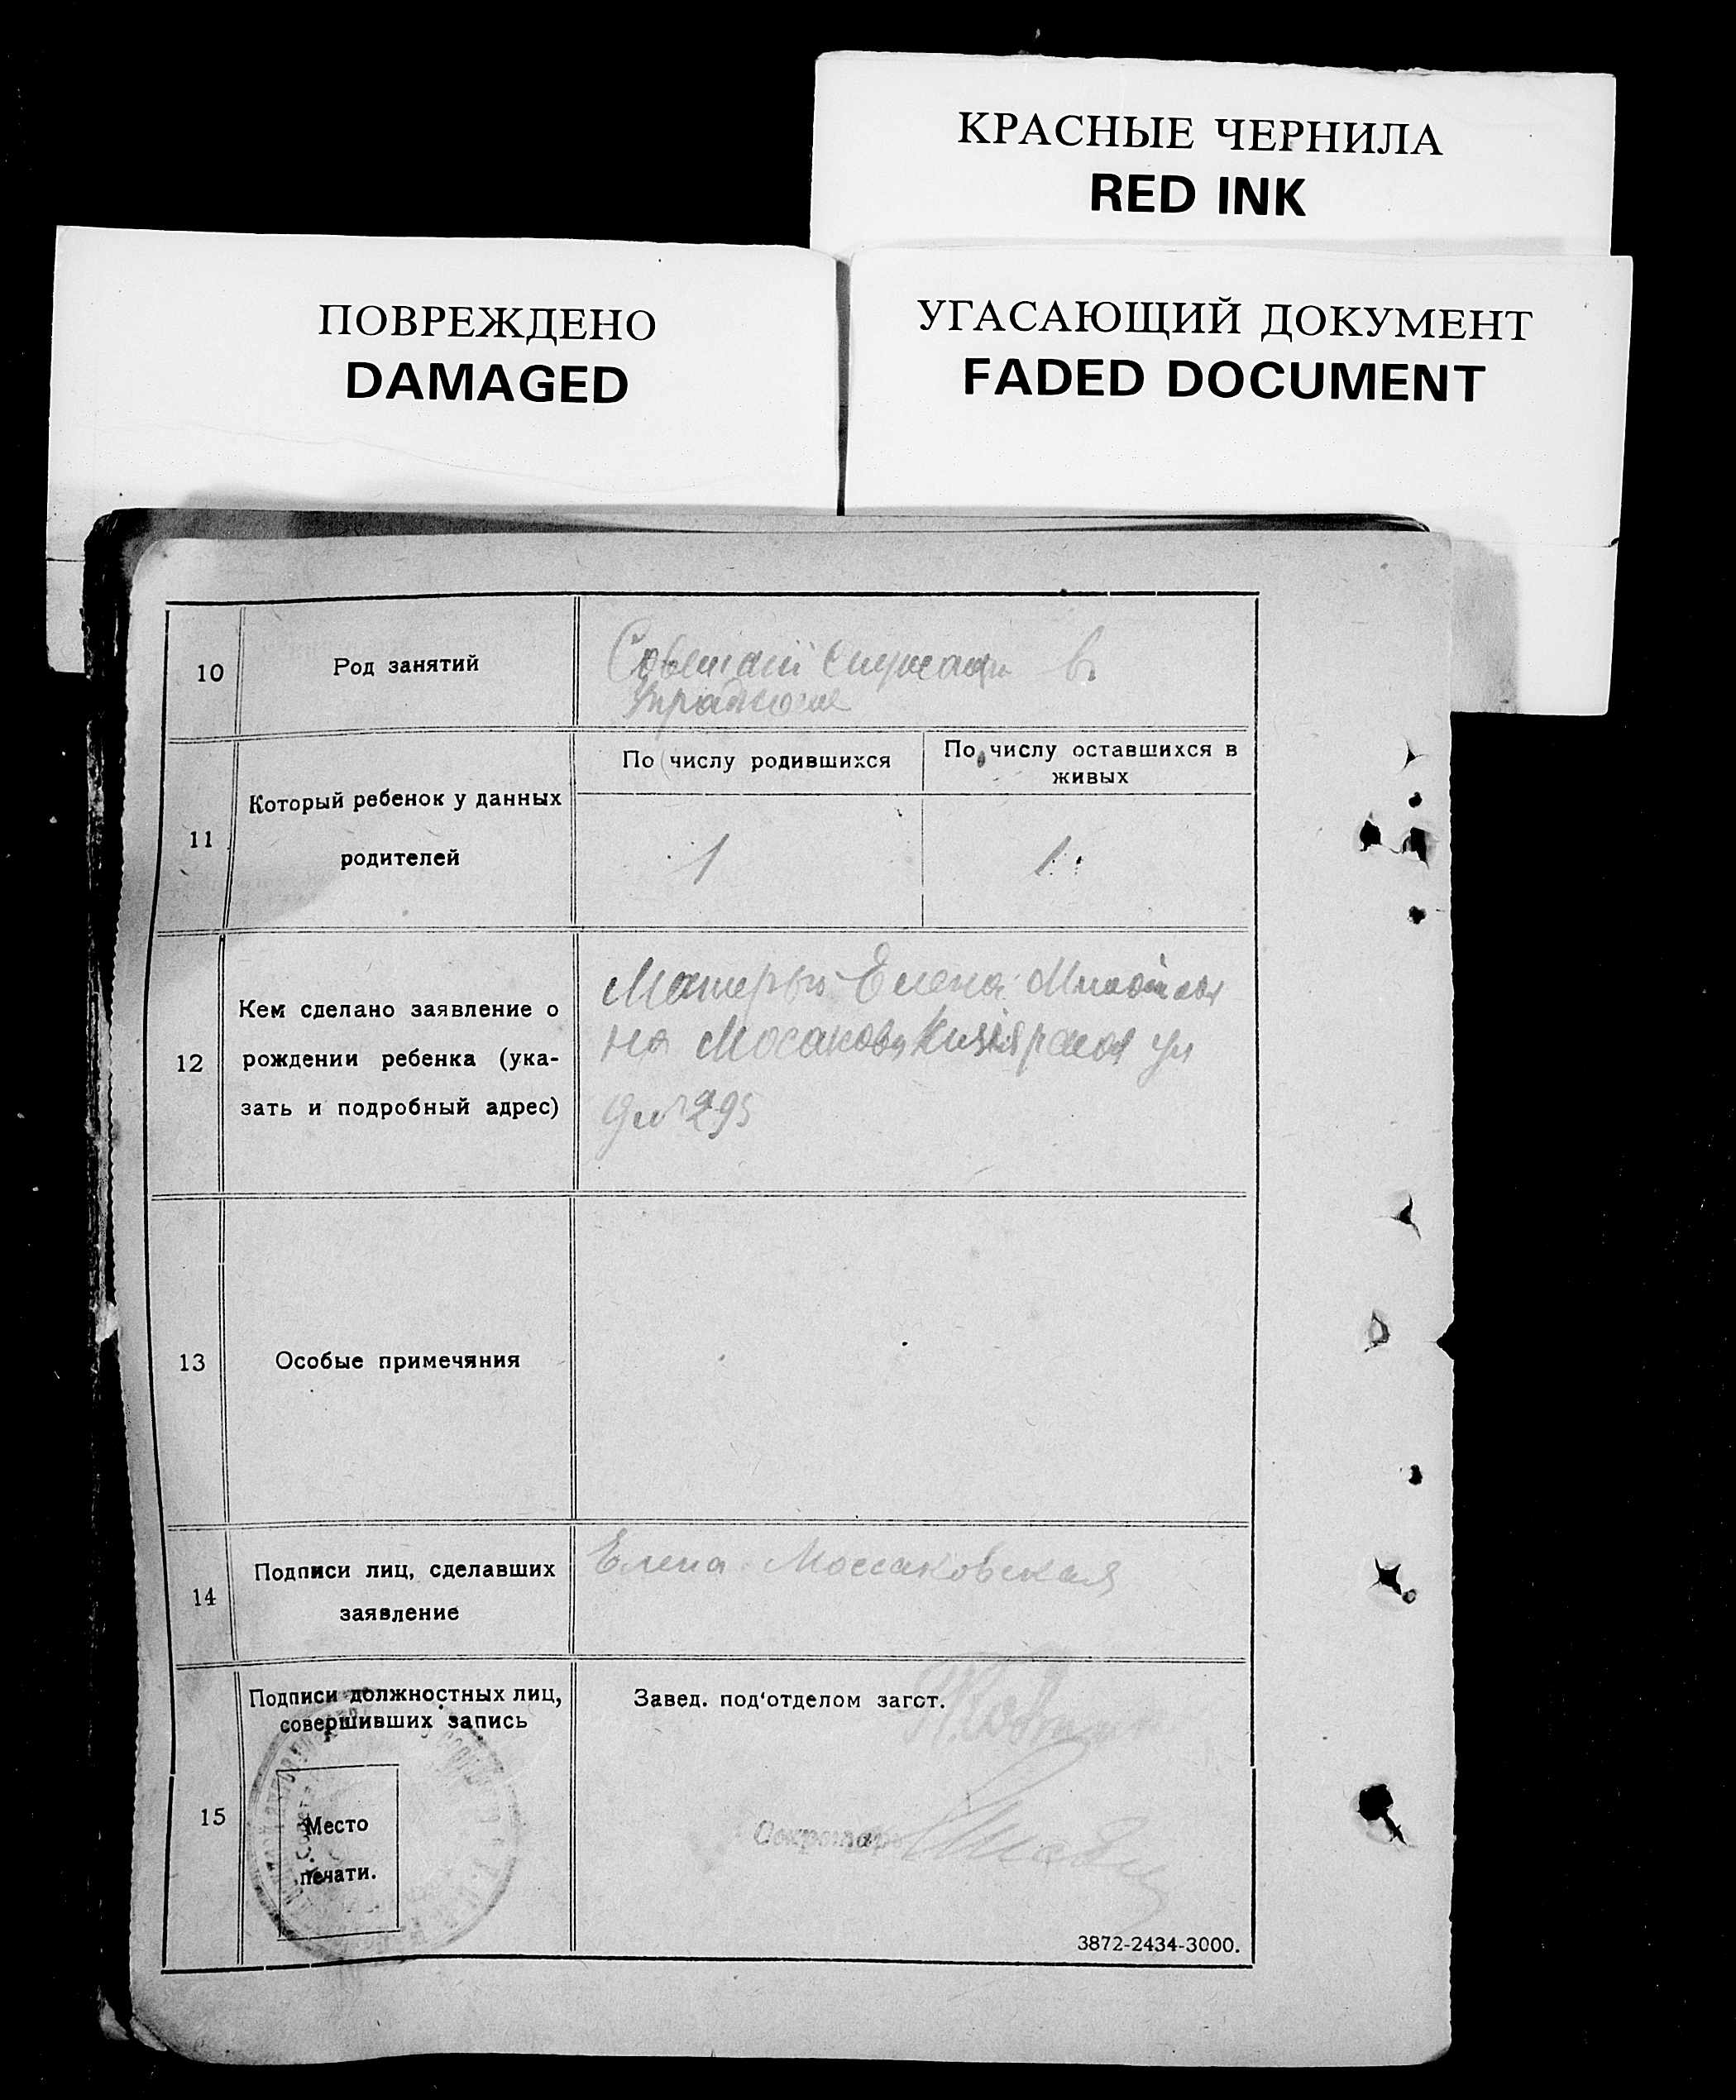 КРАСНЫЕ ЧЕРНИЛА
RED INK
ПОВРЕЖДЕНО
DAMAGED
УГАСАЮЩИЙ ДОКУМЕНТ
FADED DOCUMENT
10
Род занятий
в
11
Который ребенок у данных
родителей
По числу родившихся
По числу оставшихся в
живых
1
1
12
Кем сделано заявление о
рождении ребенка (ука-
зать и подробный адрес)
Матерью Елена
на
295
13
Особые примечяния
14
Подписи лиц, сделавших
заявление
Елена Моссаковская
15
Подписи должностных лиц,
совершивших запись
Место
печати.
Завед. под'отделом загст.
Секретарь
3872-2434-3000.